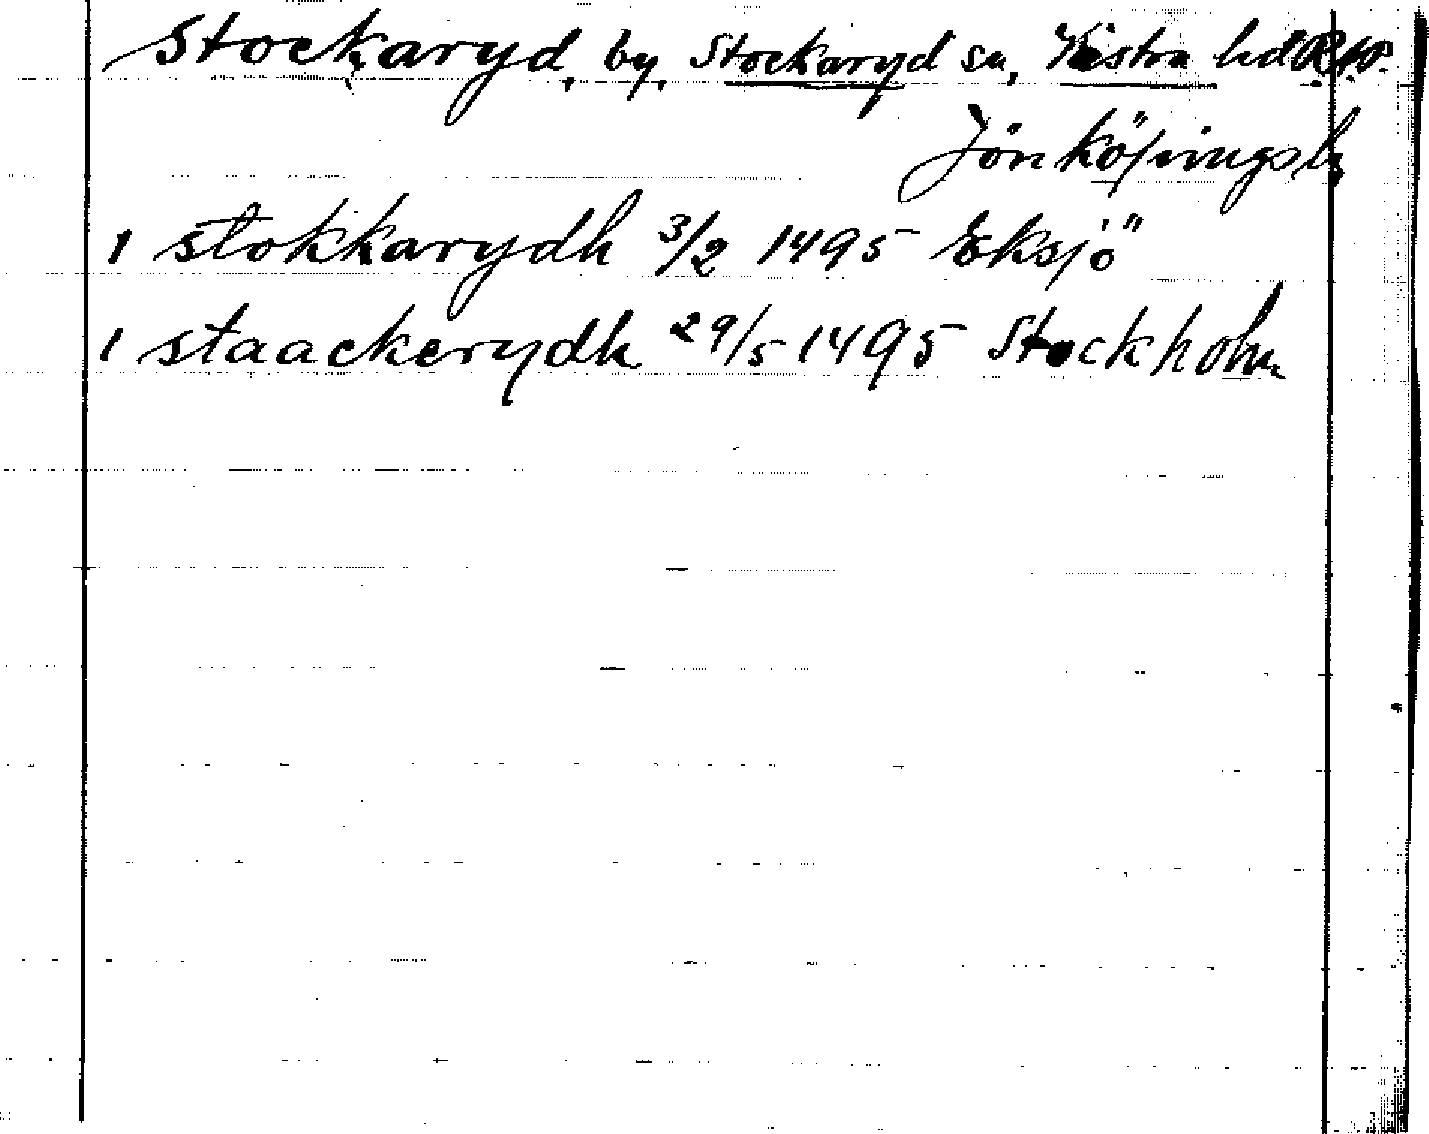 Stockaryd, by, Stockaryd sn, Västra hd
Jönköpings l.
1 stokkarydh 3/2 1495 Eksjö
1 staackerydh 29/5 1495 Stockholm